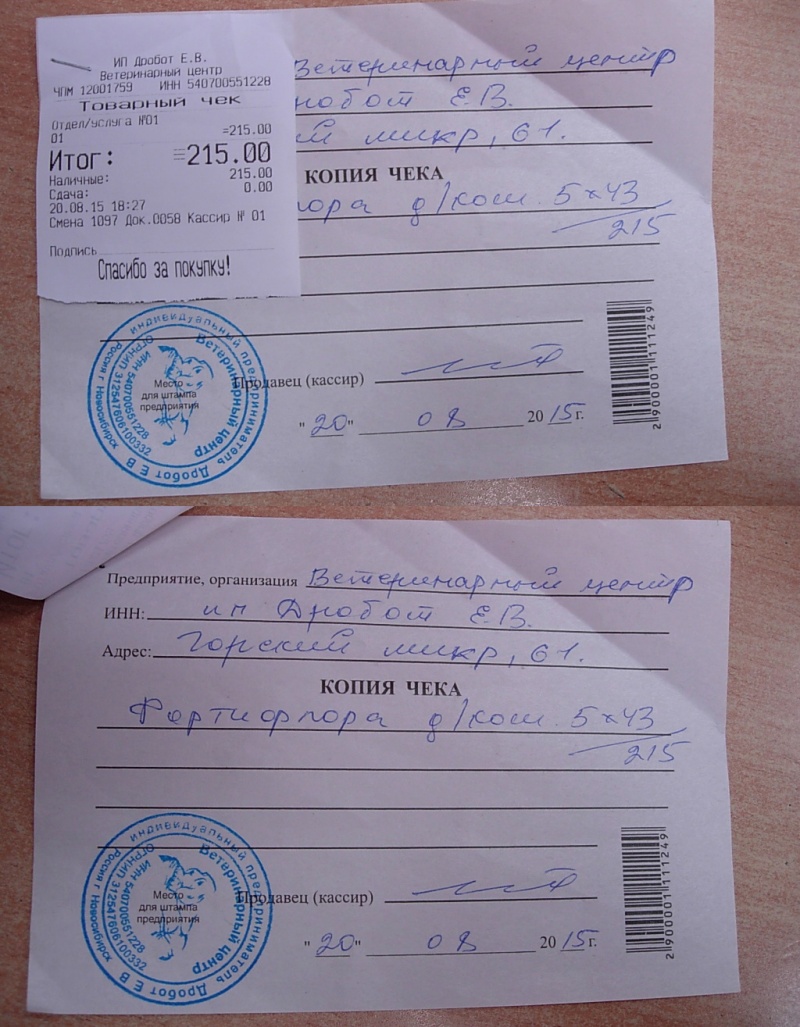 ИП Дробот Е.В.
Ветеринарный центр
ЧПМ 12001759 ИНН 540700551228
Товарный чек
Отдел/услуга №01
01 =215.00
Итог: =215.00
Наличные: 215.00
Сдача: 0.00
20.08.15 18:27
Смена 1097 Док.0058 Кассир № 01
Подпись
Спасибо за покупку!
Ветеринарный центр
робот Е.В.
микр, 61.
КОПИЯ ЧЕКА
лора д/кош. 5×43
215
индивидуальный предприниматель Дробот Е В
Ветеринарный центр
ОГРНИП 312547606100332
ИНН 540700551228
Россия г Новосибирск
Место
для штампа
предприятия
Продавец (кассир)
"20" 08 2015г.
2 900001 111249
Предприятие, организация Ветеринарный центр
ИНН: ип Дробот Е.В.
Адрес: Горский микр, 61.
КОПИЯ ЧЕКА
Фортифлора д/кош. 5×43
215
индивидуальный предприниматель Дробот Е В
Ветеринарный центр
ОГРНИП 312547606100332
ИНН 540700551228
Россия г Новосибирск
Место
для штампа
предприятия
Продавец (кассир)
"20" 08 2015г.
2 900001 111249